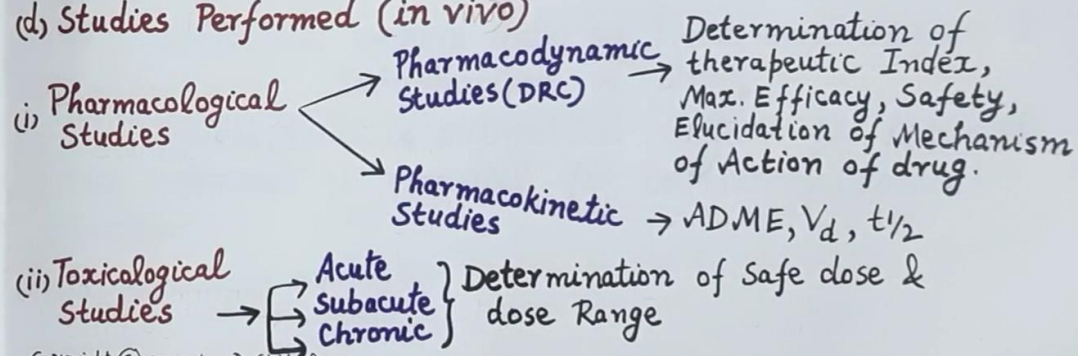 (d) Studies Performed (in vivo)
(i) Pharmacological Studies
Pharmacodynamic Studies (DRC) → Determination of therapeutic Index, Max. Efficacy, Safety, Elucidation of Mechanism of Action of drug.
Pharmacokinetic Studies → ADME, Vd, t1/2
(ii) Toxicological Studies →
Acute
Subacute
Chronic
Determination of Safe dose &
dose Range